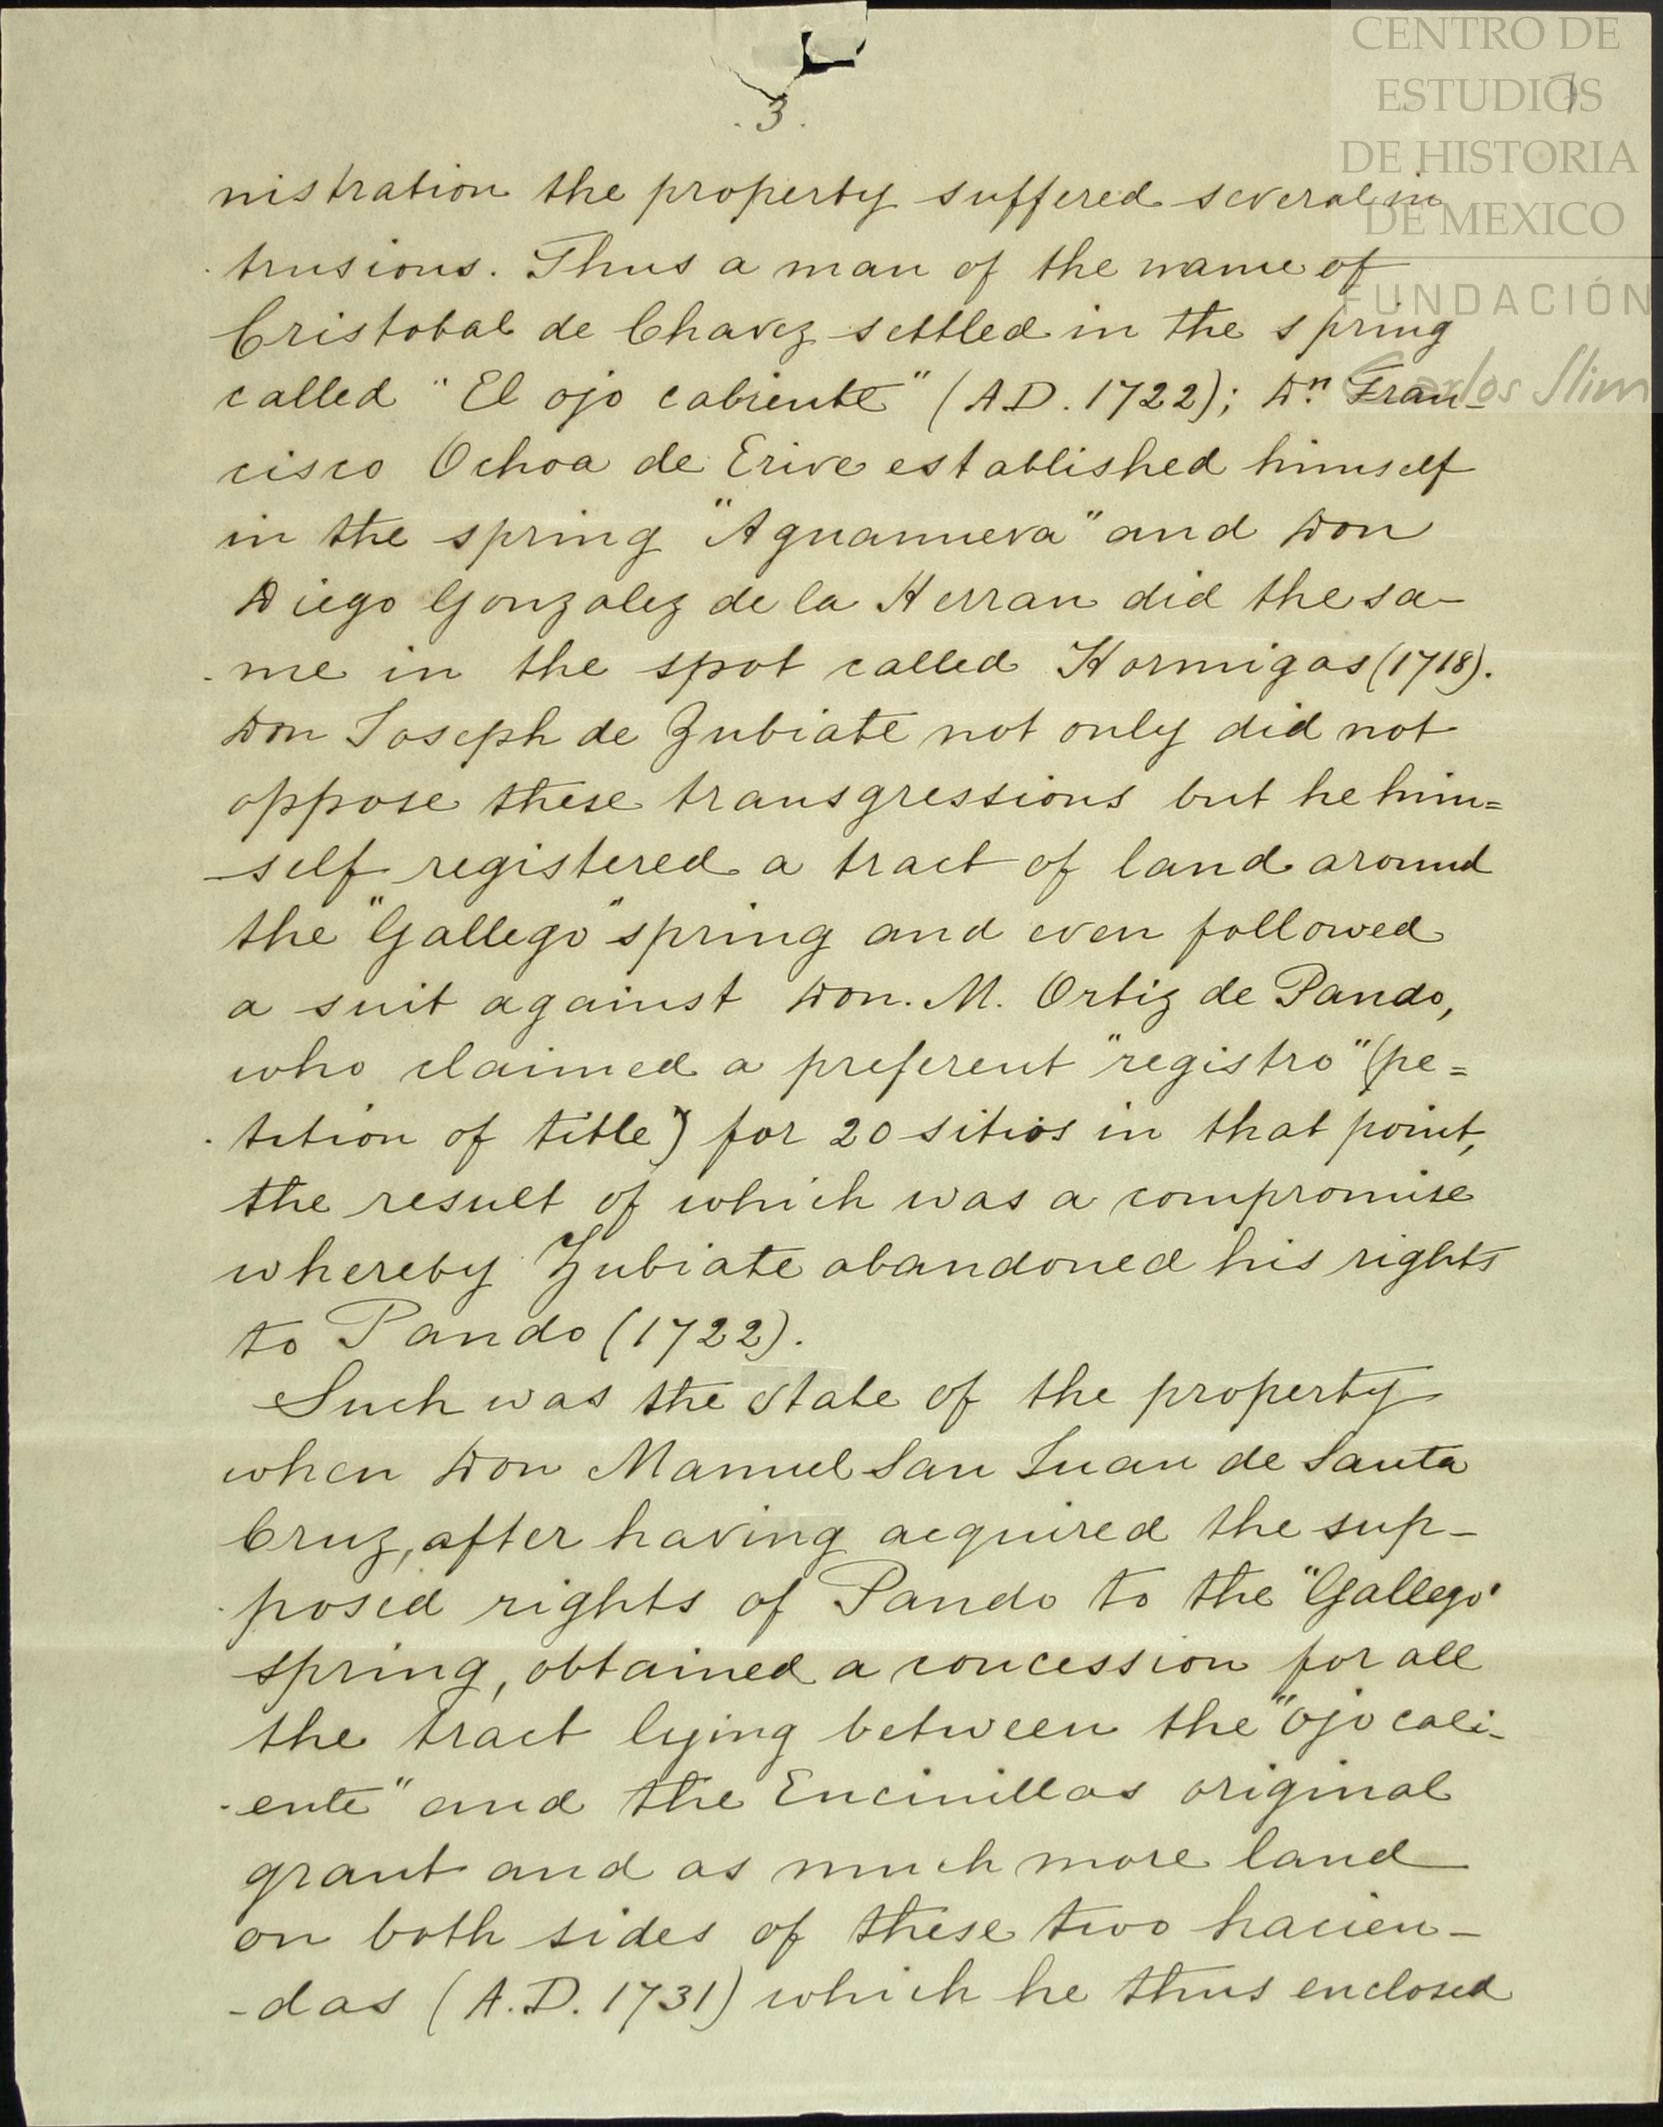 CENTRO DE
ESTUDIOS
DE HISTORIA
DE MEXICO
FUNDACIÓN
Carlos Slim
.3.
nistration the property suffered several in
trusions. Thus a man of the name of
Cristobal de Chavez settled in the spring
called "El ojo caliente" (A.D. 1722); Dn. Fran-
cisco Ochoa de Erive established himself
in the spring "Aguanueva" and Don
Diego Gonzalez de la Herran did the sa-
me in the spot called Hormigas (1718).
Don Joseph de Zubiate not only did not
oppose these transgressions but he him=
self registered a tract of land around
the "Gallego" spring and even followed
a suit against Don. M. Ortiz de Pando,
who claimed a preferent "registro" (pe=
tition of title) for 20 sitios in that point,
the result of which was a compromise
whereby Zubiate abandoned his rights
to Pando (1722).
Such was the state of the property
when Don Manuel San Juan de Santa
Cruz, after having acquired the sup-
posed rights of Pando to the "Gallego"
spring, obtained a concession for all
the tract lying between the "Ojo cali-
-ente" and the Encinillas original
grant and as much more land
on both sides of these two hacien-
-das (A.D. 1731) which he thus enclosed